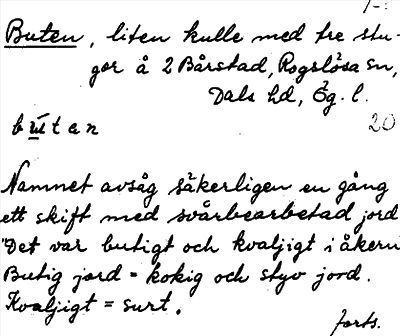 1-:
Buten, liten kulle med tre stu-
gor å 2 Bårstad, Rogslösa sn,
Dals hd, Ög. l.
bu̅tan 20
Namnet avsåg säkerligen en gång
ett skift med svårbearbetad jord
"Det var butigt och kvaljigt i åkern
Butig jord = kokig och styv jord.
Kvaljigt = surt.
forts.